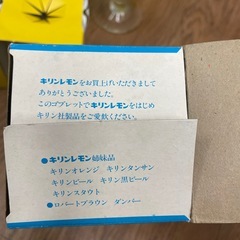 キリンレモンをお買上げいただきまして
ありがとうございました。
このゴブレットでキリンレモンをはじめ
キリン社製品をご愛飲ください。
●キリンレモン姉妹品
キリンオレンジ キリンタンサン
キリンビール キリン黒ビール
キリンスタウト
●ロバートブラウン ダンバー